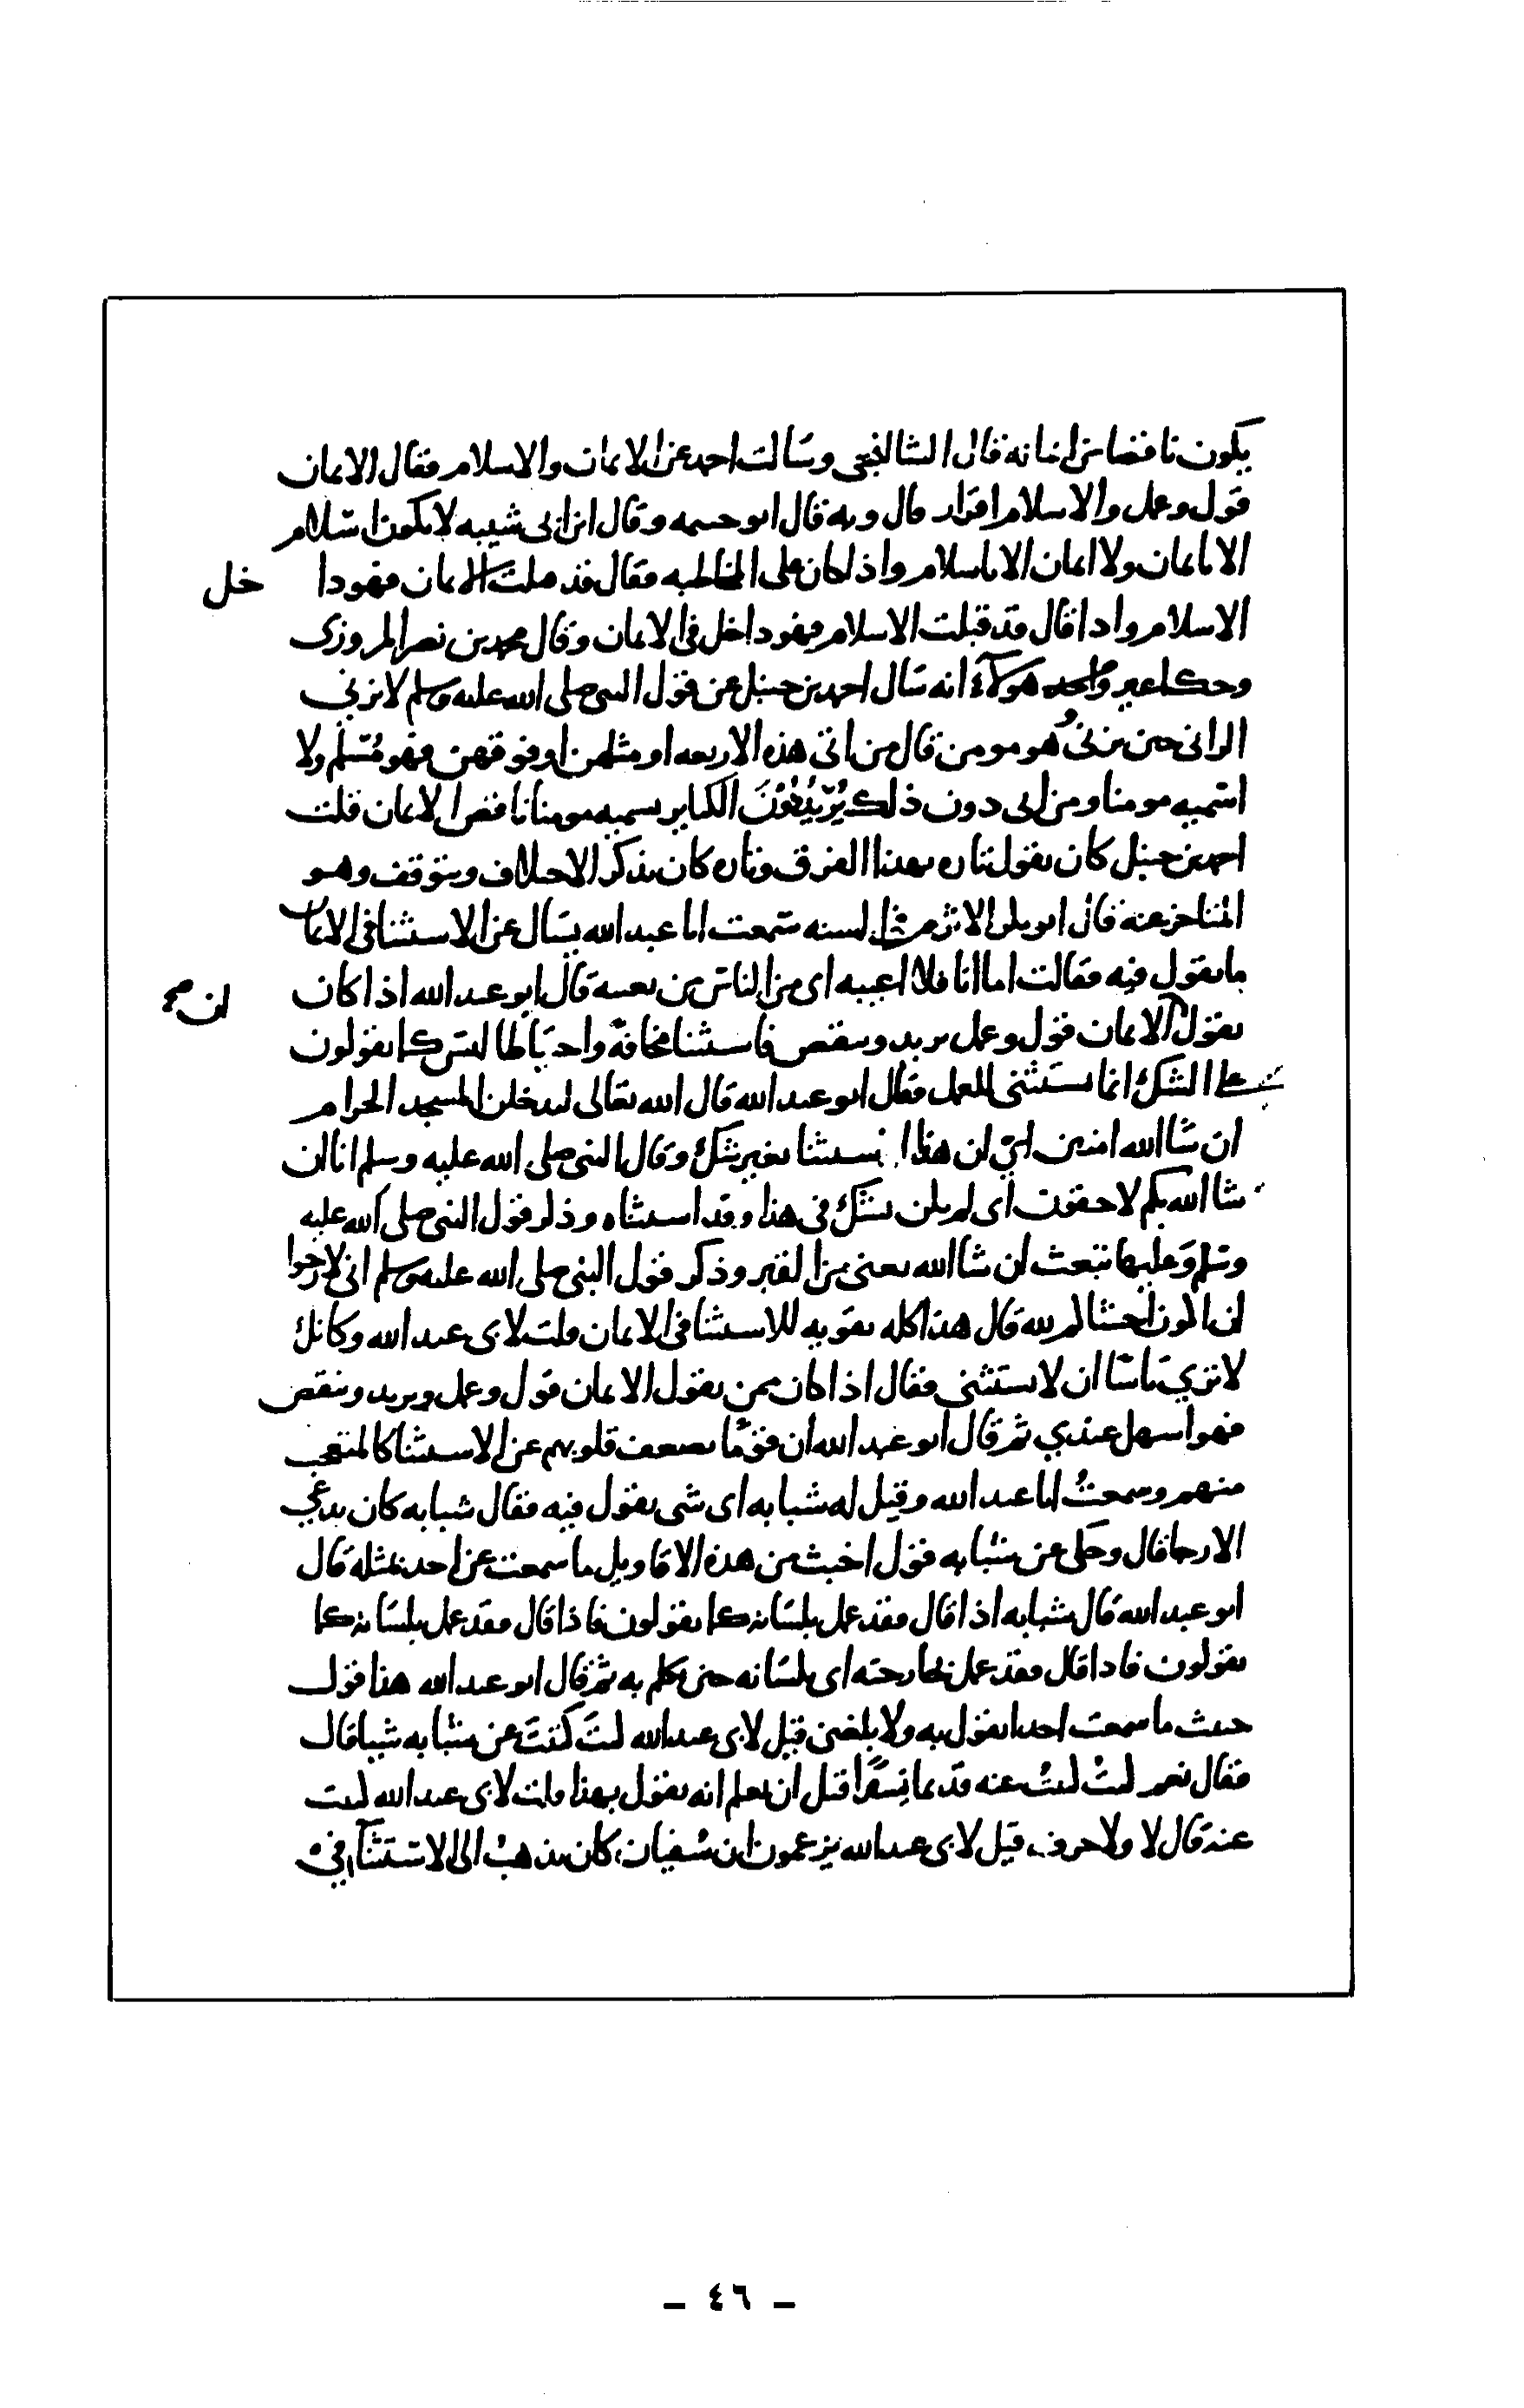 يكون ناقصا من ايمانه قال الشالنجي وسالت احمد عن الايمان والاسلام فقال الايمان
قول وعمل والاسلام اقرار قال وبه قال ابو خيثمة وقال ابن ابي شيبه لا يكون اسلام
الا بايمان ولا ايمان الا باسلام واذا كان على المخاطبه فقال قد قبلت الايمان فهو دا
خل
الاسلام واذا قال قد قبلت الاسلام فهو داخل في الايمان وقال محمد بن نصر المروزي
وحكا غير هولآء انه سال احمد بن حنبل عن قول النبي صلى الله عليه وسلم لا يزني
الزاني حين يزني وهو مومن قال من اتى هذه الاربعه او مثلهن او فوقهن فهو مسلم ولا
اسميه مومنا ومن اتى دون ذلك يريد دون الكباير نسميه مومنا ناقص الايمان قلت
احمد بن حنبل كان يقول تاره بهذا الفرق وتاره كان يذكر الاختلاف ويتوقف وهو
المتاخر عنه قال ابو بكر الاثرم في السنه سمعت ابا عبد الله يسال عن الاستثنا في الايمان
ما يقول فيه فقالت اما انا فلا اعيبه اى من الناس من يعيبه قال ابو عبد الله اذا كان
ان صح
يقول الايمان قول وعمل يزيد وينقص فاستثنا مخافة واحتياطا ليس كما يقولون
على الشك انما يستثنى للعمل فقال ابو عبد الله قال الله تعالى لتدخلن المسجد الحرام
ان شا الله امنين اي ان هذا استثنا بغير شك وقال النبي صلى الله عليه وسلم انا ان
شا الله بكم لاحقون اى لم يكن يشك في هذا وقد استثناه وذكر قول النبي صلى الله عليه
وسلم وعليها نبعث ان شا الله يعنى من القبر وذكر قول النبي صلى الله عليه وسلم انى لارجوا
ان اكون اخشاكم لله قال هذا كله تقويه للاستثنا في الايمان قلت لابى عبد الله وكانك
لا ترى باسا ان لا يستثنى فقال اذا كان ممن يقول الايمان قول وعمل ويزيد وينقص
فهو اسهل عندي ثم قال ابو عبد الله ان قوما تضعف قلوبهم عن الاستثنا كالمتعجب
منهم وسمعت ابا عبد الله وقيل له شبابه اى شى يقول فيه فقال شبابه كان يدعي
الارجا قال وحكى عن شبابه قول اخبث من هذه الاقاويل ما سمعت عن احد بمثله قال
ابو عبد الله قال شبابه اذا قال فقد عمل بلسانه كما يقولون فاذا قال فقد عمل بلسانه كما
يقولون فاذا قال فقد عمل بجارحته اى بلسانه حين تكلم به ثم قال ابو عبد الله هذا قول
خبيث ما سمعت احدا يقول به ولا بلغني قيل لابى عبد الله كنت كتبت عن شبابه شيا قال
فقال نعم كنت كتبت عنه قديما يسيرا قبل ان نعلم انه يقول بهذا قلت لابى عبد الله كتبت
عنه قال لا ولا حرف قيل لابى عبد الله يزعمون ان سفيان كان يذهب الى الاستثنآء في
- ٤٦ -